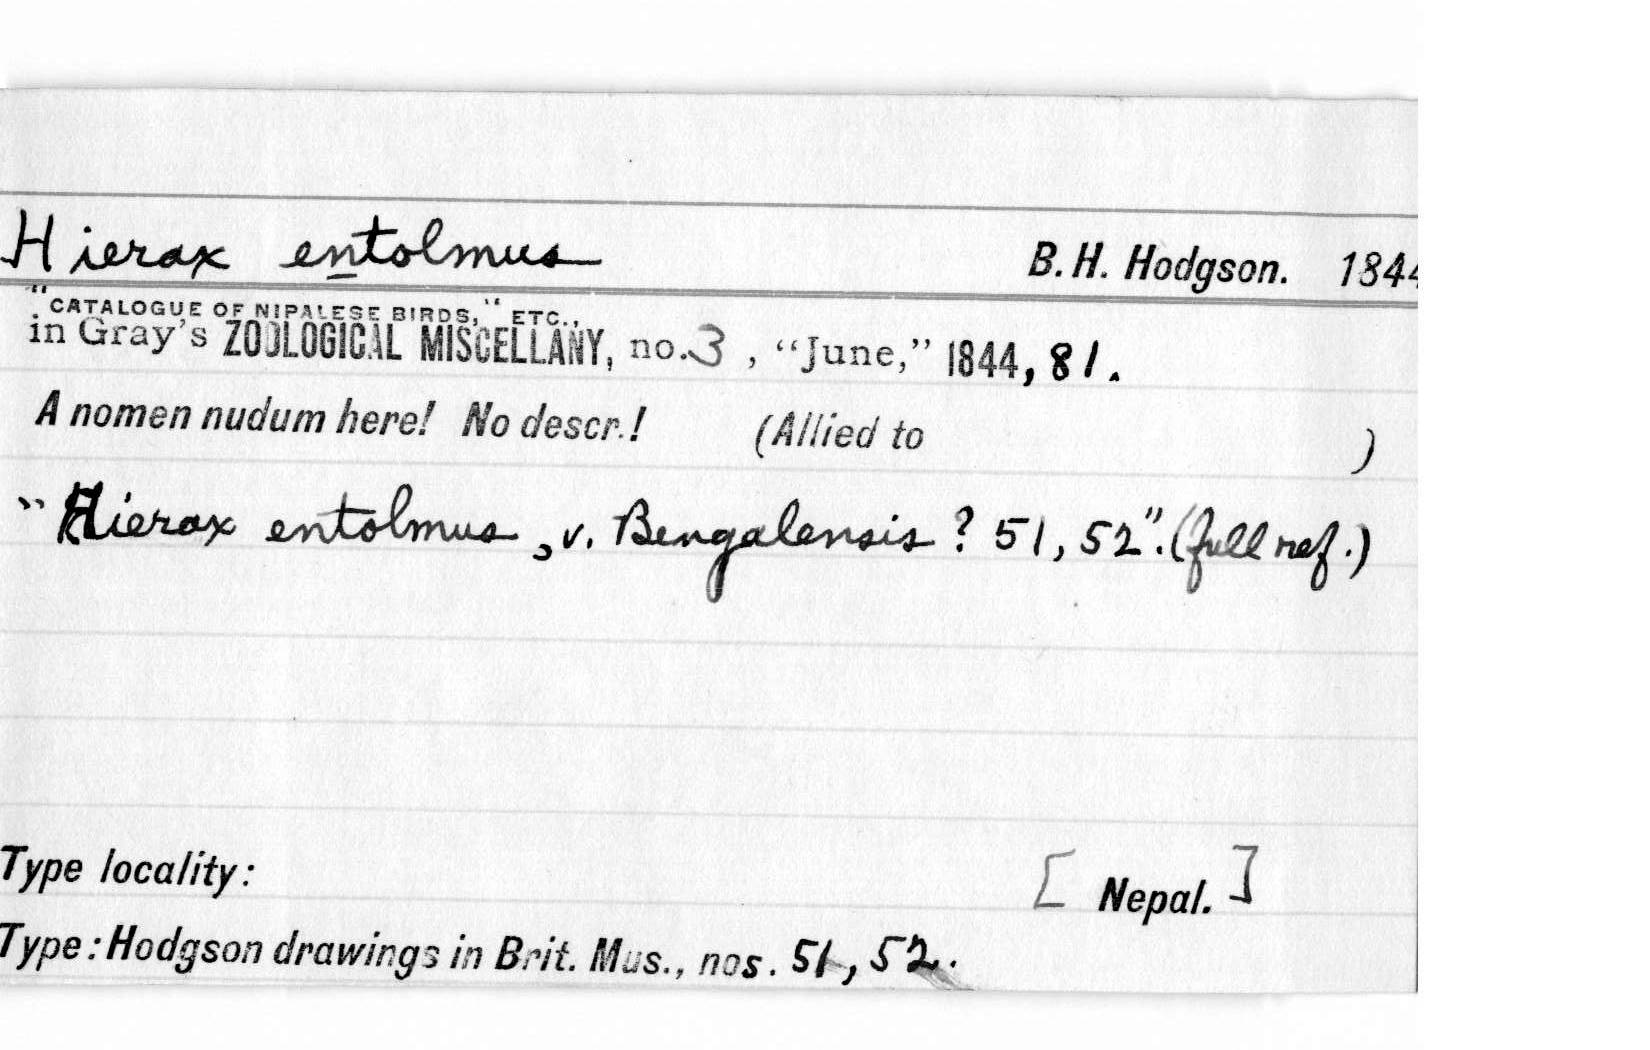 Hierax entolmus B. H. Hodgson. 1844
"CATALOGUE OF NIPALESE BIRDS," ETC.,
in Gray's ZOOLOGICAL MISCELLANY, no. 3, "June," 1844, 81.
A nomen nudum here! No descr.! (Allied to )
"Hierax entolmus, v. Bengalensis? 51, 52". (full ref.)
Type locality: [Nepal.]
Type: Hodgson drawings in Brit. Mus., nos. 51, 52.